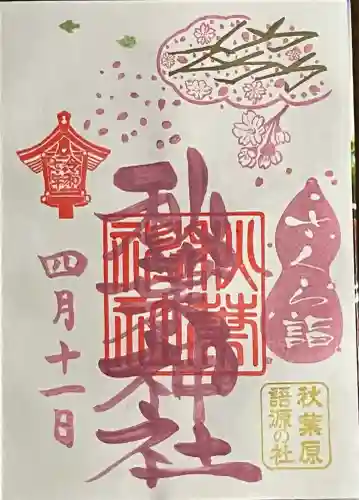 さくら詣
秋葉神社
秋葉神社
四月十一日
秋葉原
語源の社